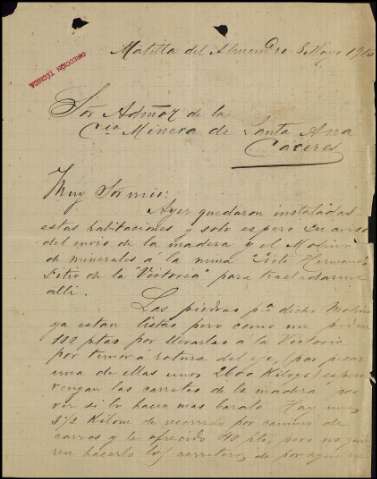 Matilla del Almendro 8 Mayo 19
DIRECCIÓN TÉCNICA
Sor Admōr de la
Cia Minera de Santa Ana
Cáceres
Muy Sor mio:
Ayer quedaron instaladas
estas habitaciones y solo espero su aviso
del envio de la madera y el Molino
de minerales á la mina "Siete Hermanos"
de la "Victoria" para trasladarme
alli.
Las piedras pa. dicho Molino
ya estan listas pero como me piden
ptas por llevarlas á la Victoria
por temor á rotura del eje, (por pesar
una de ellas unos 2600 Kilogs)
vengan las carretas de la madera
ver si lo hacen mas barato. Hay unos
3½ Kilom de recorrido por camino de
carros y le ofrecido 40 pts, pero no
hacerlo los carreteros de por aqui